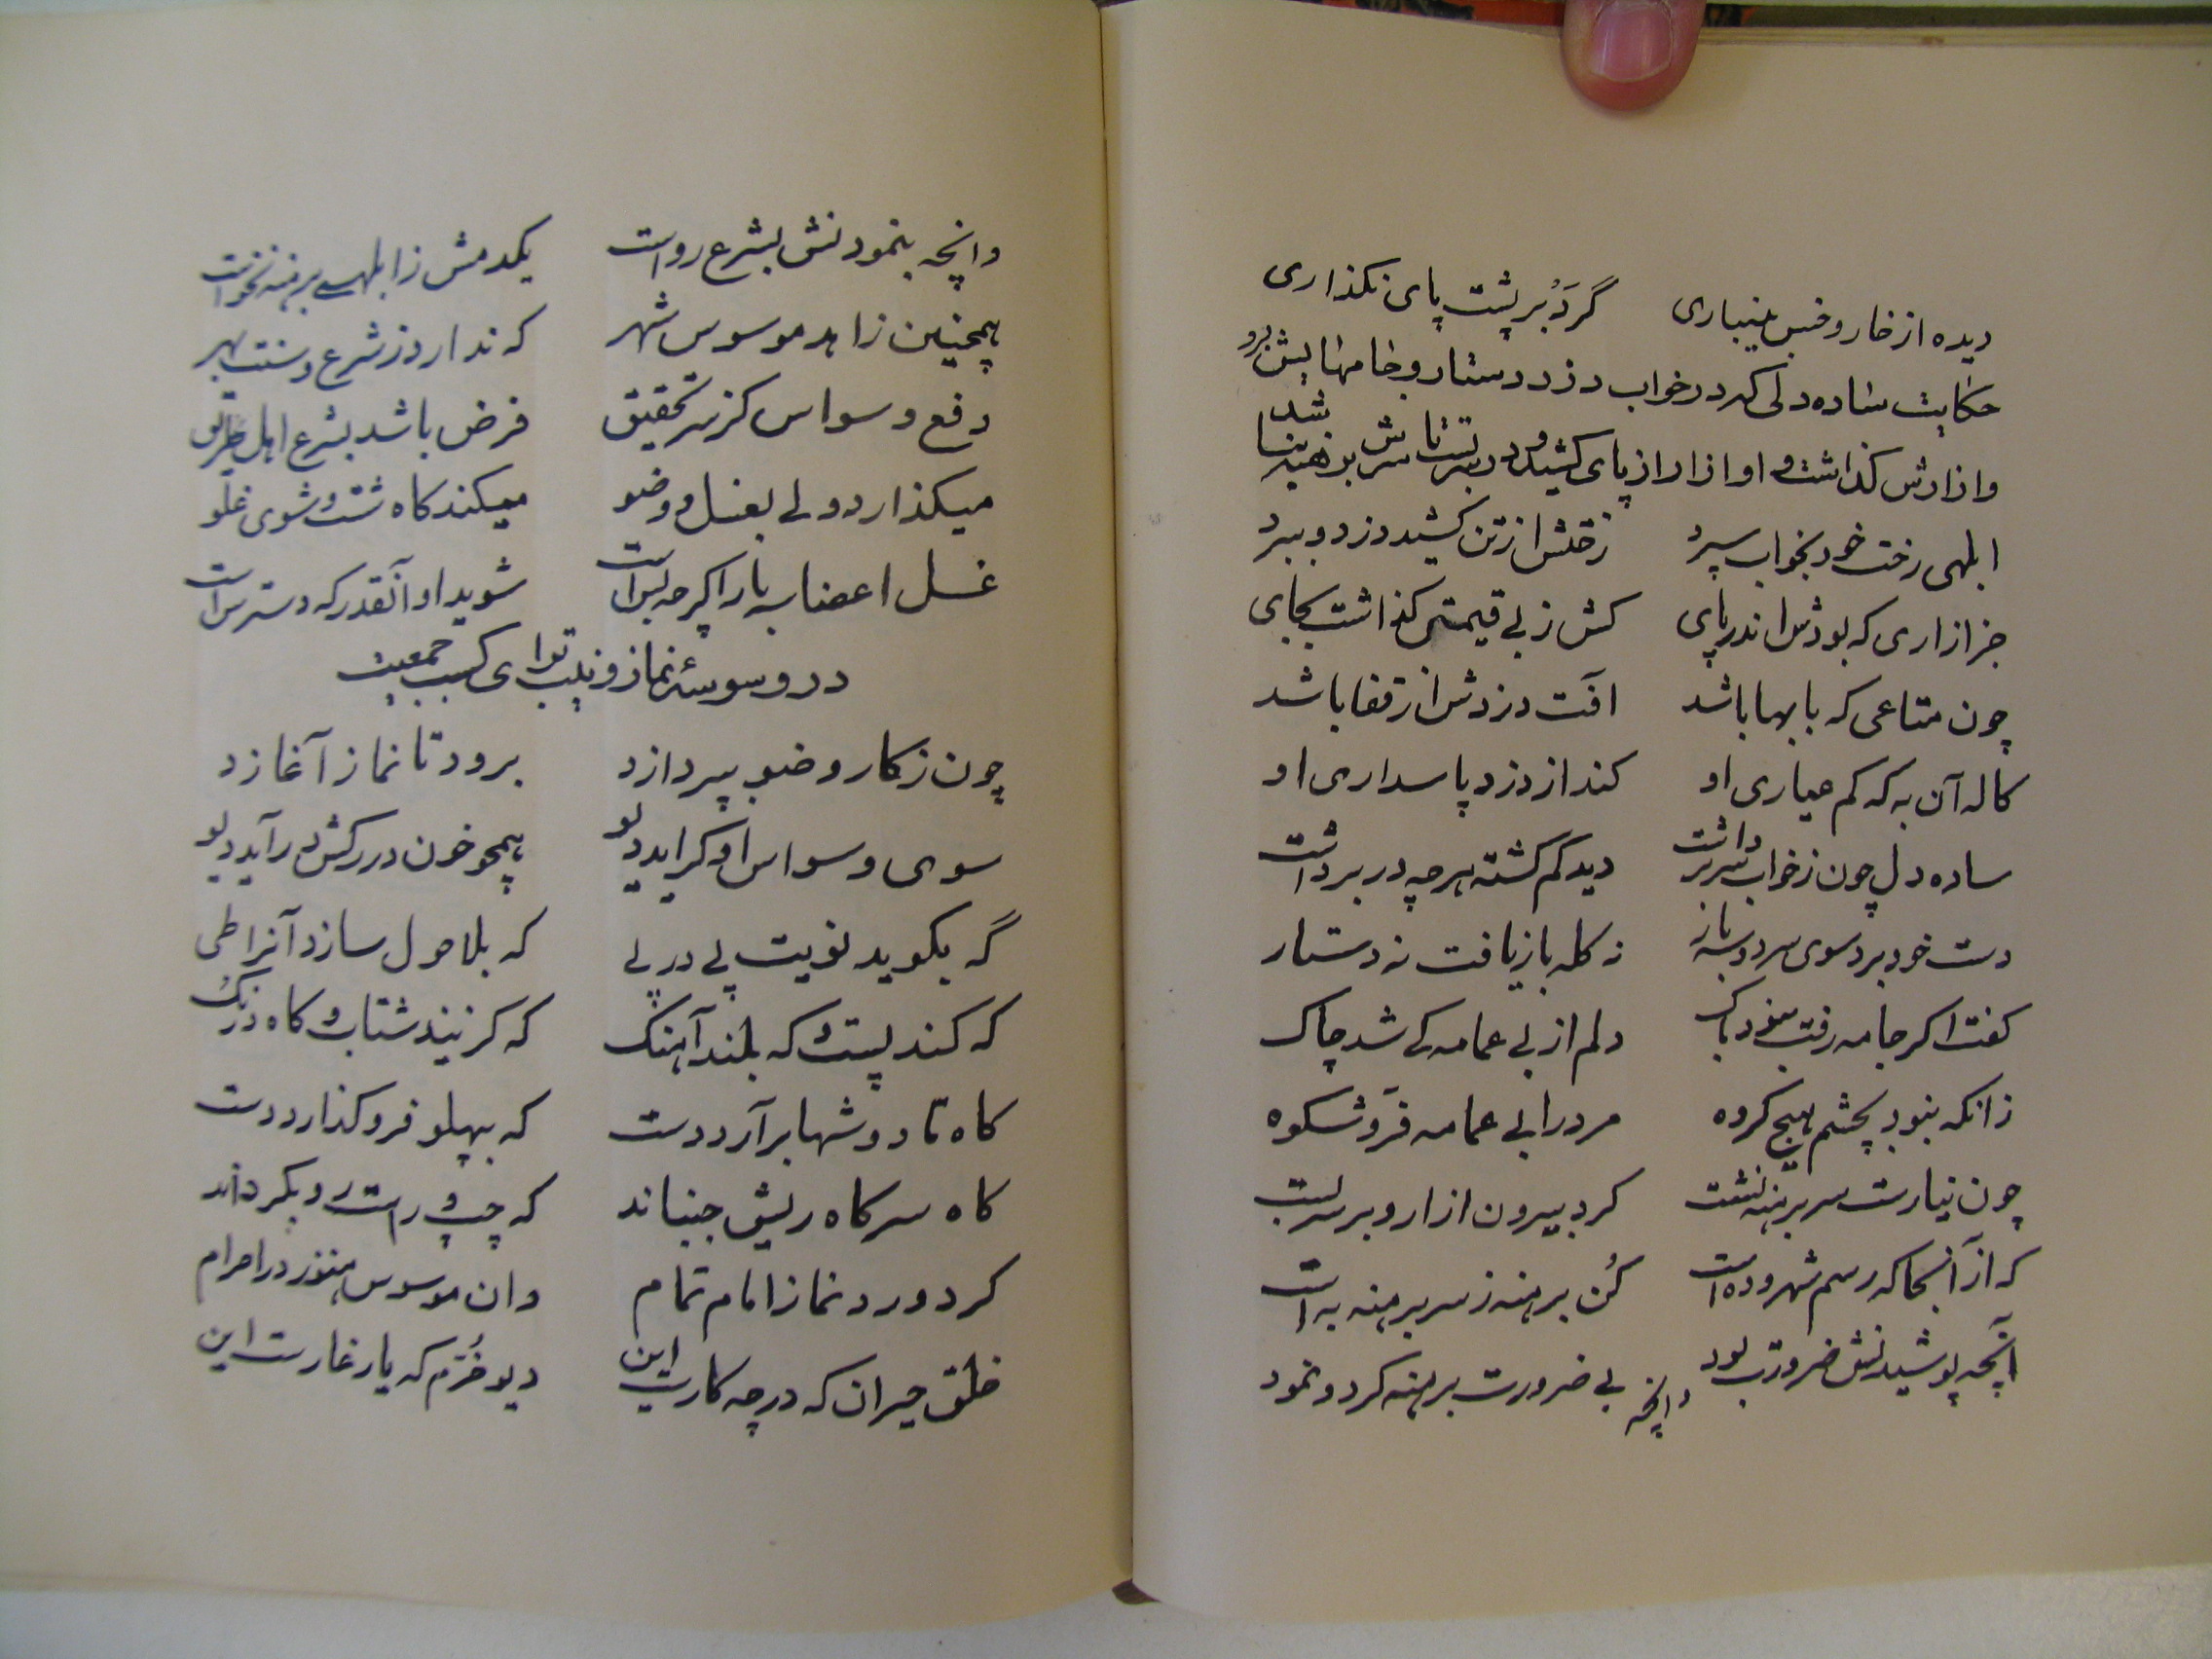 دیده از خار و خس بینباری گرد بر پشت پای نگذاری
حکایت ساده دلی که در خواب دزد دستار و جامهایش برد
و ازارش گذاشت و او ازار از پای کشید و در سر بست تا سرش برهنه نباشد
ابلهی رخت خود بخواب سپرد رختش از تن کشید دزد و ببرد
جز ازاری که بودش اندر پای کش ز بی قیمتی گذاشت بجای
چون متاعی که با بها باشد آفت دزدش از قفا باشد
کاله آن به که کم عیاری او کند از دزد پاسداری او
ساده دل چون ز خواب سر برداشت دید گم گشته هر چه در بر داشت
دست خود برد سوی سر دو سه بار نه کله باز یافت نه دستار
گفت اگر جامه رفت نبود باک دلم از بی عمامه کی شد چاک
زانکه نبود بچشم هیچ گروه مرد را بی عمامه فر و شکوه
چون نیارست سر برهنه نشست کرد بیرون ازار و بر سر بست
که از آنجا که رسم شهر و ده است کن برهنه ز سر برهنه به است
آنچه پوشیدنش ضرورت بود بی ضرورت برهنه کرد و نمود
وانچه
وانچه بنمودنش بشرع رواست یکدمش ز ابلهی برهنه نخواست
همچنین زاهد موسوس شهر که ندارد ز شرع و سنت بهر
دفع وسواس کز سر تحقیق فرض باشد بشرع اهل طریق
میگذارد ولی بغسل و وضو میکند گاه شست و شوی غلو
غسل اعضا سه بار اگر چه بس است شوید او آنقدر که دسترس است
در وسوسهٔ نماز و نیت برای کسب جمعیت
چون ز کار وضو بپردازد برود تا نماز آغازد
سوی وسواس او گراید دیو همچو خون در رگش درآید دیو
گه بگوید نویت پی در پی که بلا حول سازد آنرا طی
گه کند پست و گه بلند آهنگ گه گزیند شتاب و گاه درنگ
گاه تا دوشها برآرد دست گه بپهلو فرو گذارد دست
گاه سر گاه ریش جنباند گه چپ و راست رو بگرداند
کرد ورد نماز امام تمام وان موسوس هنوز در احرام
خلق حیران که در چه کارست این دیو خرم که یار غارست این